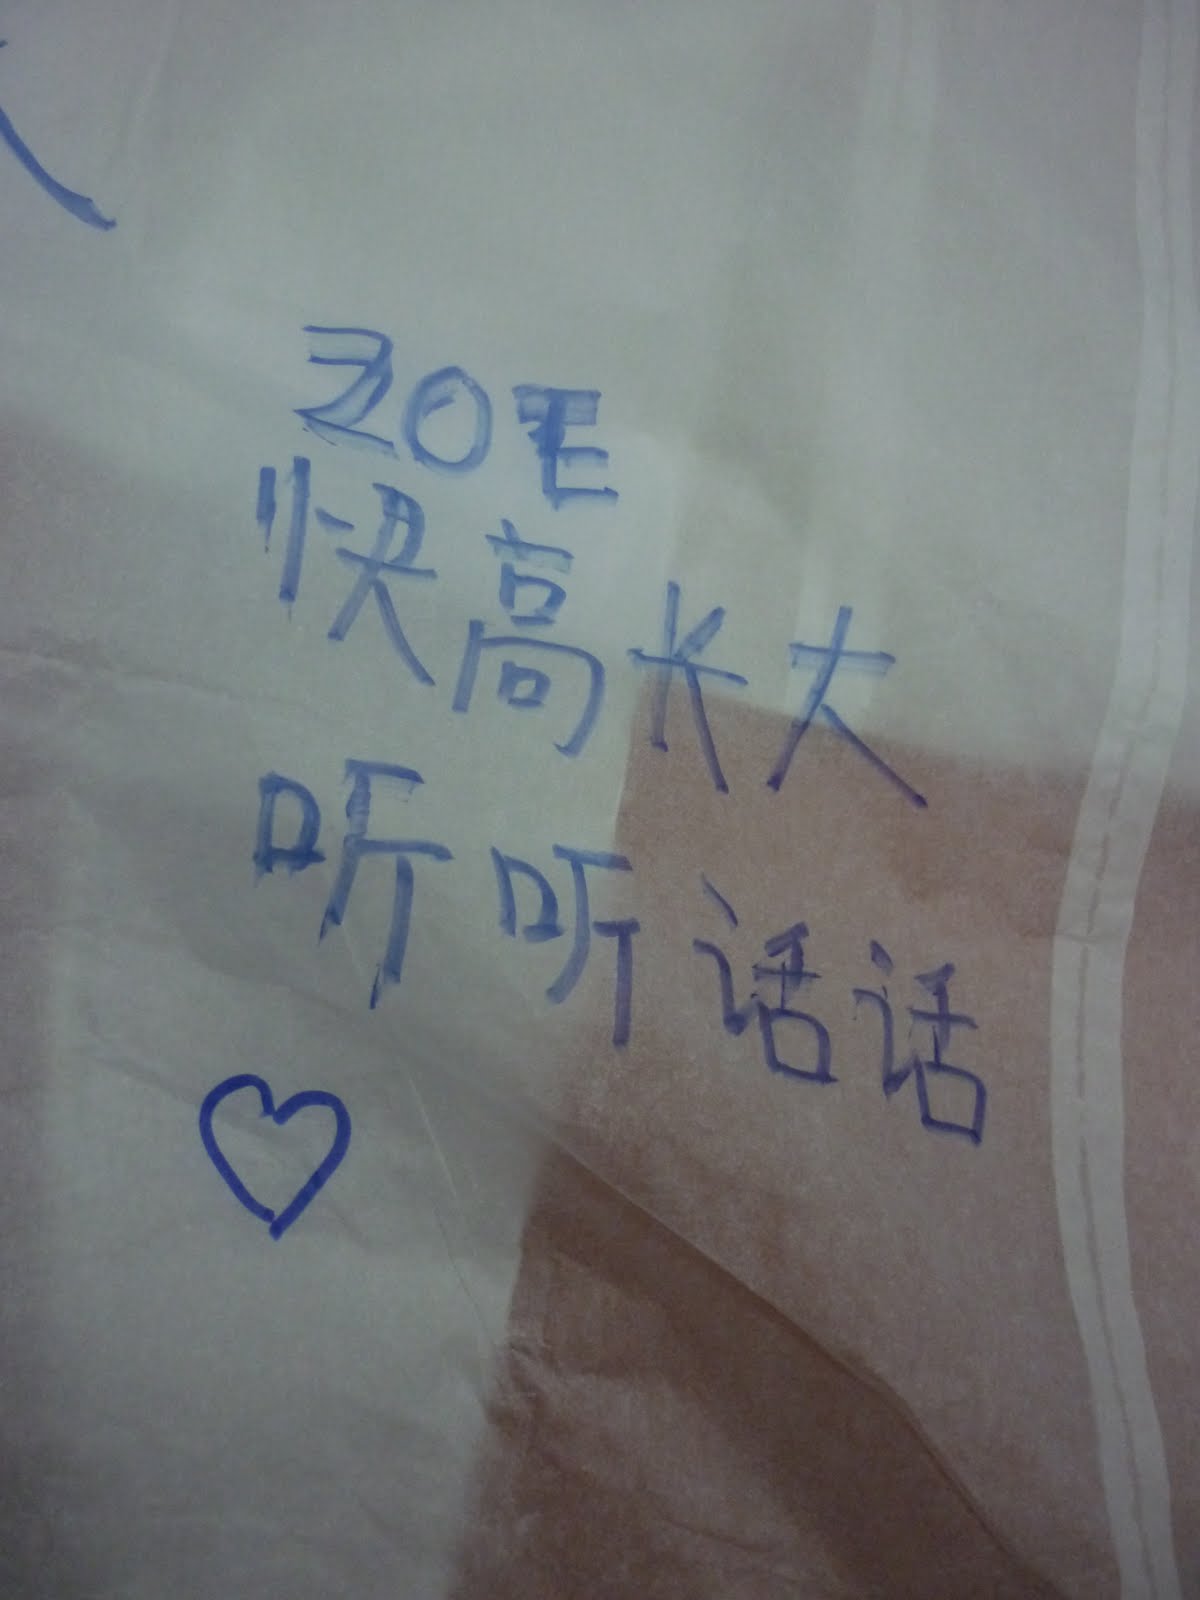 ZOE
快高长大
听听话话